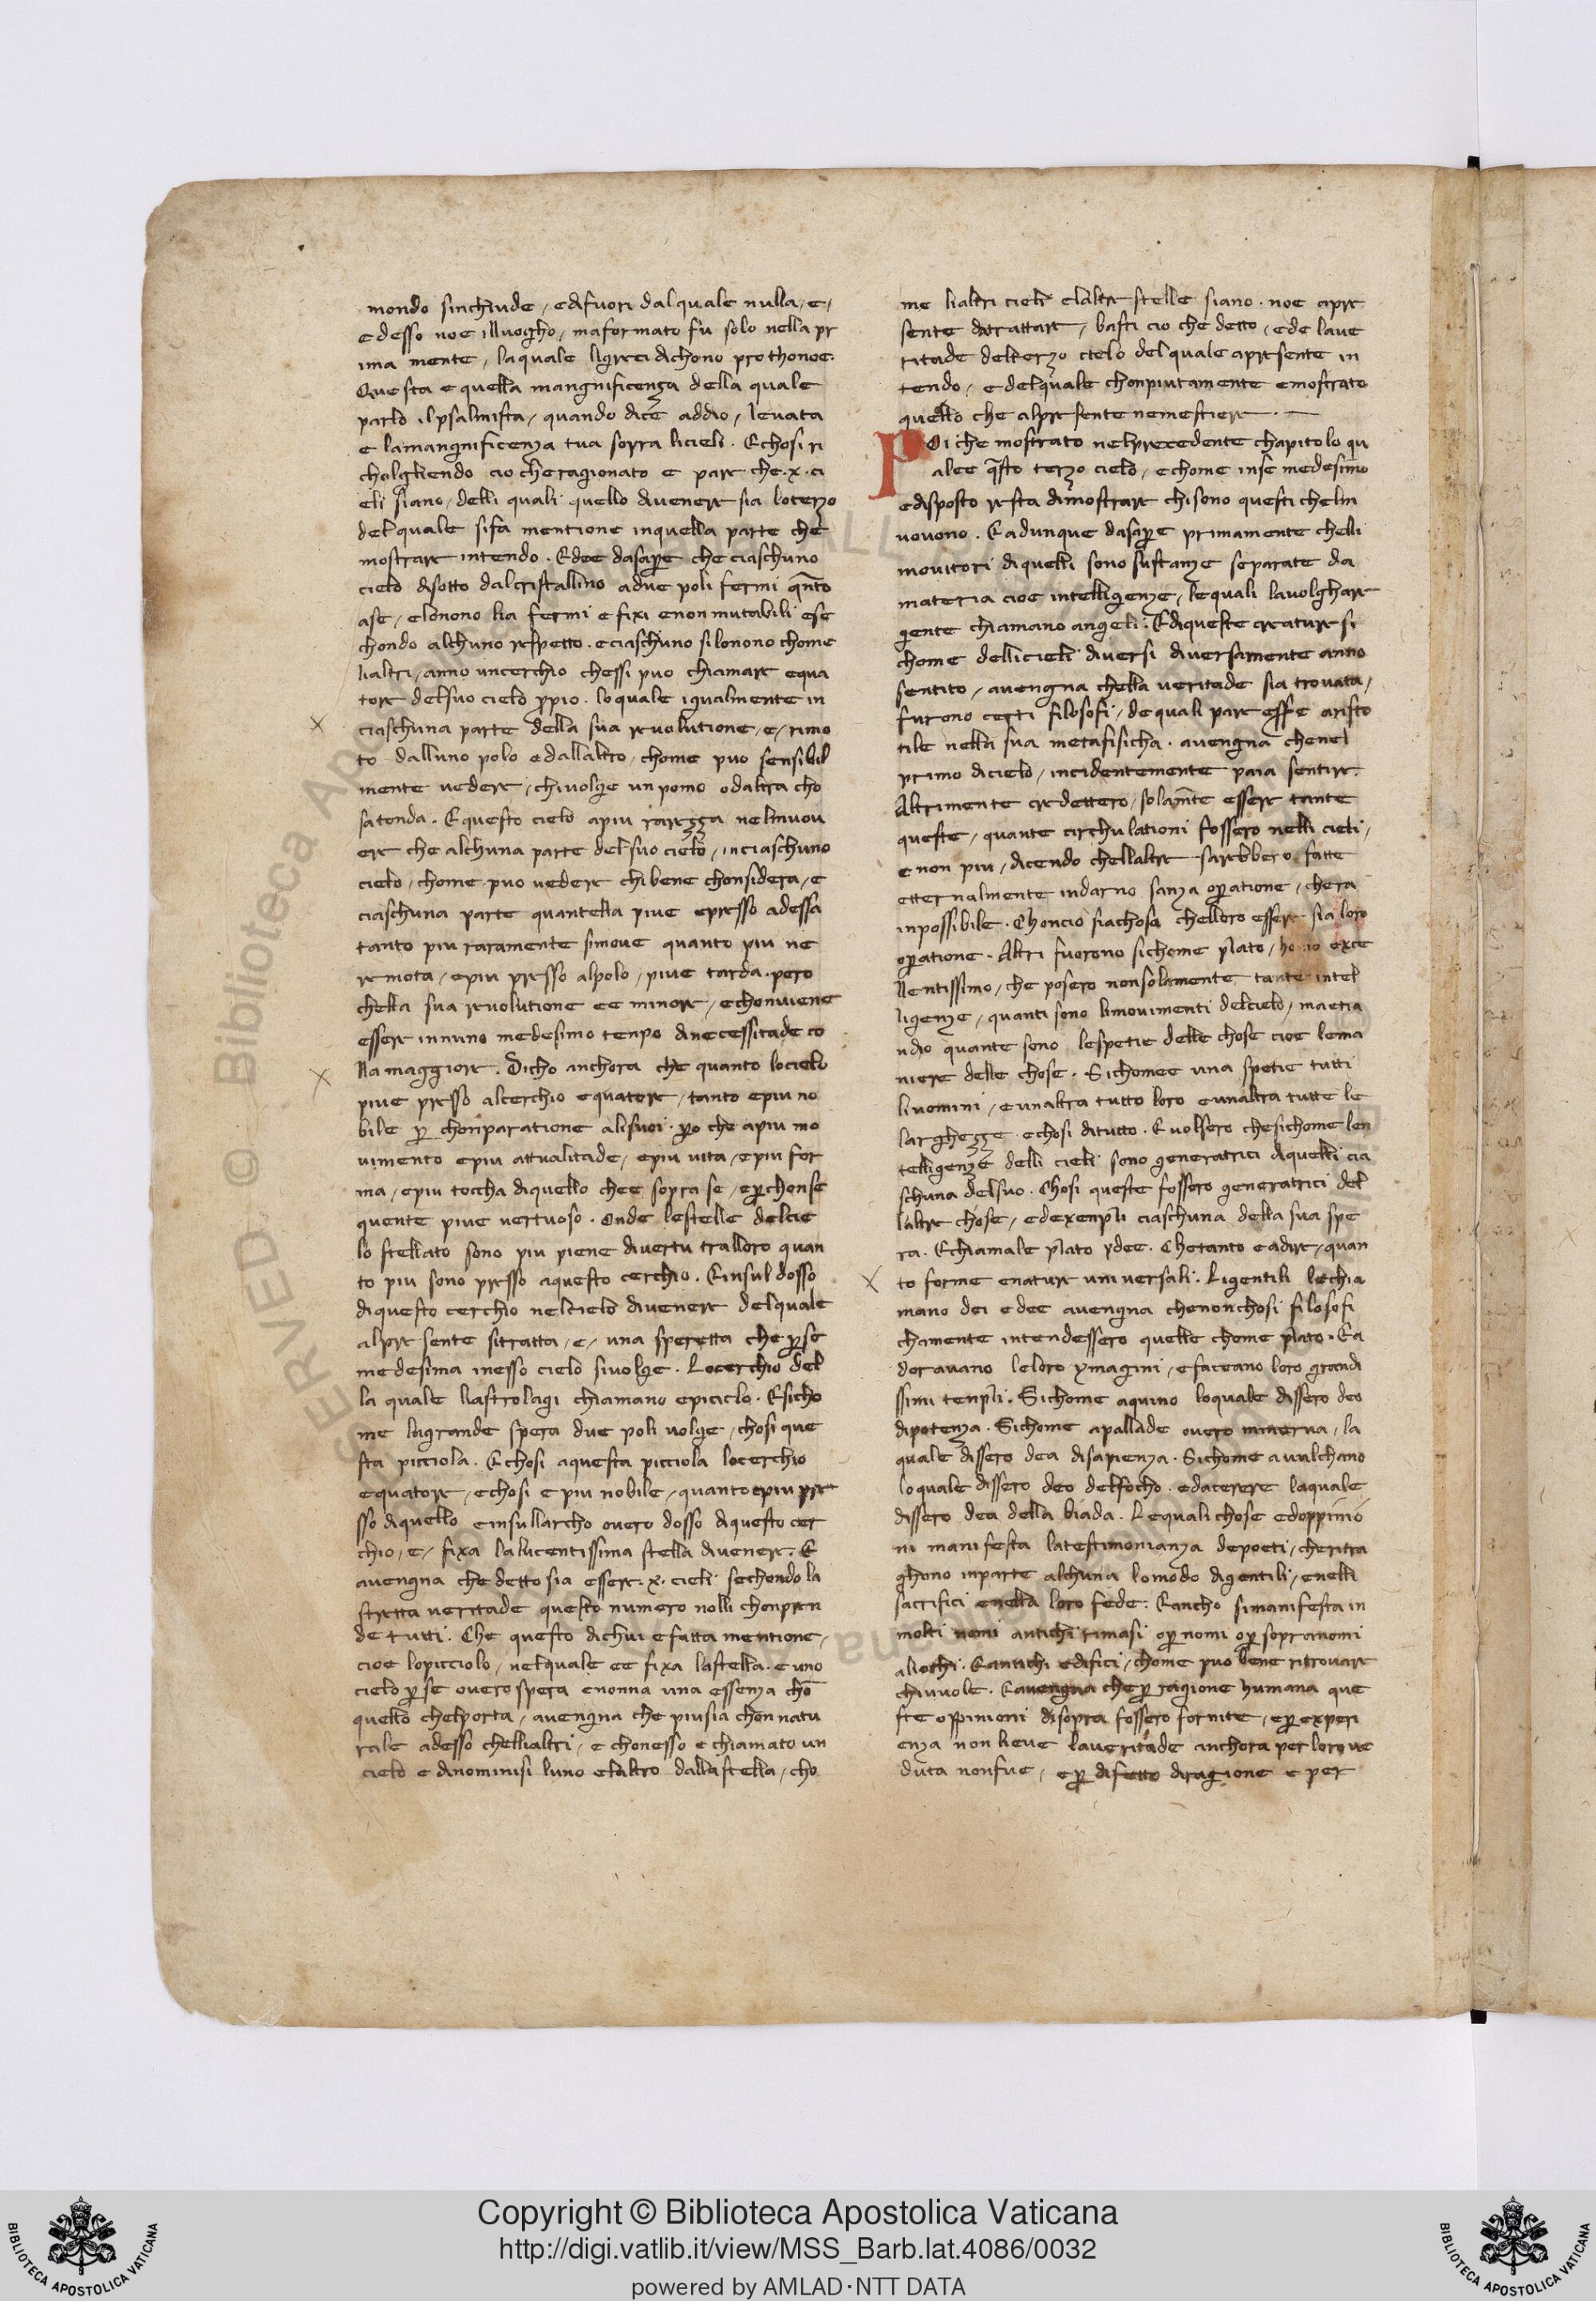 mondo sinchiude, e di fuori dal quale nulla, e,
e desso noe illuogho, ma formato fu solo nella pr
ima mente, la quale ligreci dichono prothonoe.
Questa e quella mangnificenza della quale
parlo il psalmista, quando dice addio, levata
e lamangnificenza tua sopra licieli. Echosi ri
cholgliendo cio che ragionato e pare che .x. ci
eli siano, delli quali quello divenere sia loterzo
delquale sifa mentione inquella parte che
mostrare intendo. Edee dasap̱e che ciaschuno
cielo disotto dalcristallino adue poli fermi qñto
ase, elonono lia fermi e fixi enon mutabili ese
chondo alchuno respetto. eciaschuno silonono chome
lialtri, anno uncerchio chessi puo chiamare equa
tore delsuo cielo p̱pio. loquale igualmente in
ciaschuna parte della sua revolutione, e, rimo
to dalluno polo edallaltro, chome puo sensibil
mente vedere, chivolge un pomo odaltra cho
sa tonda. Equesto cielo apiu rarezza nelmuov
ere che alchuna parte delsuo cielo, inciaschuno
cielo, chome puo vedere chi bene chonsidera, e
ciaschuna parte quantella piue epresso adessa
tanto piu raramente simove quanto piu ne
remota, epiu presso alpolo, piue tarda. pero
chella sua revolutione ee minore, echonviene
essere innuno medesimo tenpo dinecessitade co
lla maggiore. Dicho anchora che quanto locielo
piue presso alcerchio equatore, tanto epiu no
bile p̱ chonparatione alisuoi. p̱o che apiu mo
vimento epiu attualitade, epiu vita, epiu for
ma, epiu toccha diquello chee sopra se, ep̱chonse
quente piue vertuoso. Onde lestelle delcie
lo stellato sono piu piene divertu tralloro quan
to piu sono presso aquesto cerchio. Einsul dosso
diquesto cerchio nelcielo divenere delquale
alpre sente sitratta, e, una speretta che p̱se
medesima inesso cielo sivolge. Locerchio del
la quale liastrolagi chiamano epiciclo. Esicho
me lagrande spera due poli volge, chosi que
sta picciola. Echosi aquesta picciola locerchio
equatore, echosi e piu nobile, quanto epiu pre
sso diquello einsullarcho overo dosso diquesto cer
chio, e, fixa lalucentissima stella divenere. E
avengna che detto sia essere .x. cieli sechondo la
stretta veritade questo numero nolli chonpren
de tutti. Che questo dichui efatta mentione,
cioe lopicciolo, nelquale ee fixa lastella. e uno
cielo p̱se overo spera enonna una essenza chō
quello chelporta, avengna che piusia chonnatu
rale adesso chellialtri, e chonesso echiamato un
cielo e dinominisi luno elaltro dallastella, cho
me lialtri cieli elaltre stelle siano. noe apre
sente ditrattare, basti cio che detto, ede lave
ritade delterzo cielo delquale apresente in
tendo, e delquale chonpiutamente emostrato
quello che alpresente nemestiere.
POi che mostrato nelprecedente chapitolo qu
alee q̄sto terzo cielo, echome inse medesimo
edisposto resta dimostrare chisono questi chelm
uovono. Eadunque dasap̱e primamente chelli
movitori diquelli sono sustanze separate da
materia cioe intelligenze, lequali lavolghare
gente chiamano angeli. Ediqueste creature si
chome dellicieli diversi diversamente anno
sentito, avengna chella veritade sia trovata,
furono certi filosofi, de quali pare esse aristo
tile nella sua metafisicha. avengna chenel
primo dicielo, incidentemente paia sentire.
Altrimente credettero, solam̄te essere tante
queste, quante circhulationi fossero nelli cieli,
enon piu, dicendo chellaltre sarebbero fatte
etternalmente indarno sanza op̱atione, chera
inpossibile. Choncio fiachosa chelloro essere sia loro
op̱atione. Altri fuorono sichome plato, homo exce
llentissimo, che posero nonsolamente tante intel
ligenze, quanti sono limovimenti delcielo, maetia
ndio quante sono lespetie delle chose cioe lema
niere delle chose. Sichomee una spetie tutti
livomini, eunaltra tutto loro eunaltra tutte le
larghezze echosi ditutto. Evolsero chesichome len
telligenze delli cieli sono generatrici diquelli cia
schuna delsuo. Chosi queste fossero generatrici del
laltre chose, edexenpli ciaschuna della sua spe
ra. Echiamale plato ydee. Chetanto eadire, quan
to forme enature universali. Ligentili lechia
mano dei e dee avengna chenonchosi filosofi
chamente intendessero quelle chome plato. Ea
doravano leloro ymagini, efaceano loro grandi
ssimi tenpli. Sichome aquino loquale dissero deo
dipotenza. Sichome apallade overo minerva, la
quale dissero dea disapienza. Sichome avulchano
loquale dissero deo delfocho. edacerere laquale
dissero dea della biada. Lequali chose edoppinio
ni manifesta latestimonianza depoeti, cheritra
ghono inparte alchuna lomodo digentili, enelli
sacrifici enella loro fede. Eancho simanifesta in
molti nomi antichi rimasi op̱ nomi op̱ sopranomi
aliochi. Eantichi edifici, chome puo bene ritrovare
chivuole. Eavengna che p̱ ragione humana que
ste oppinioni disopra fossero fornite, ep̱ experi
enza non lieve laveritade anchora per loro ve
duta nonfue, ep̱ difetto diragione e per
Copyright © Biblioteca Apostolica Vaticana
http://digi.vatlib.it/view/MSS_Barb.lat.4086/0032
powered by AMLAD·NTT DATA
BIBLIOTECA APOSTOLICA VATICANA
BIBLIOTECA APOSTOLICA VATICANA